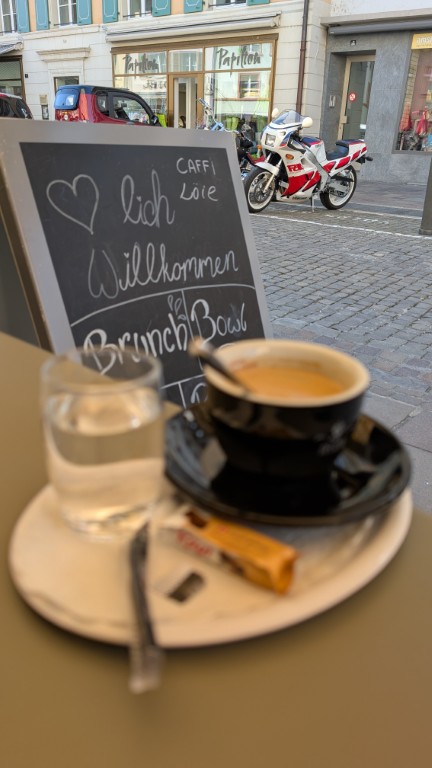 Papillon
Papillon
CAFFI
LOiE
♡lich
Willkommen
Brunch Bowl